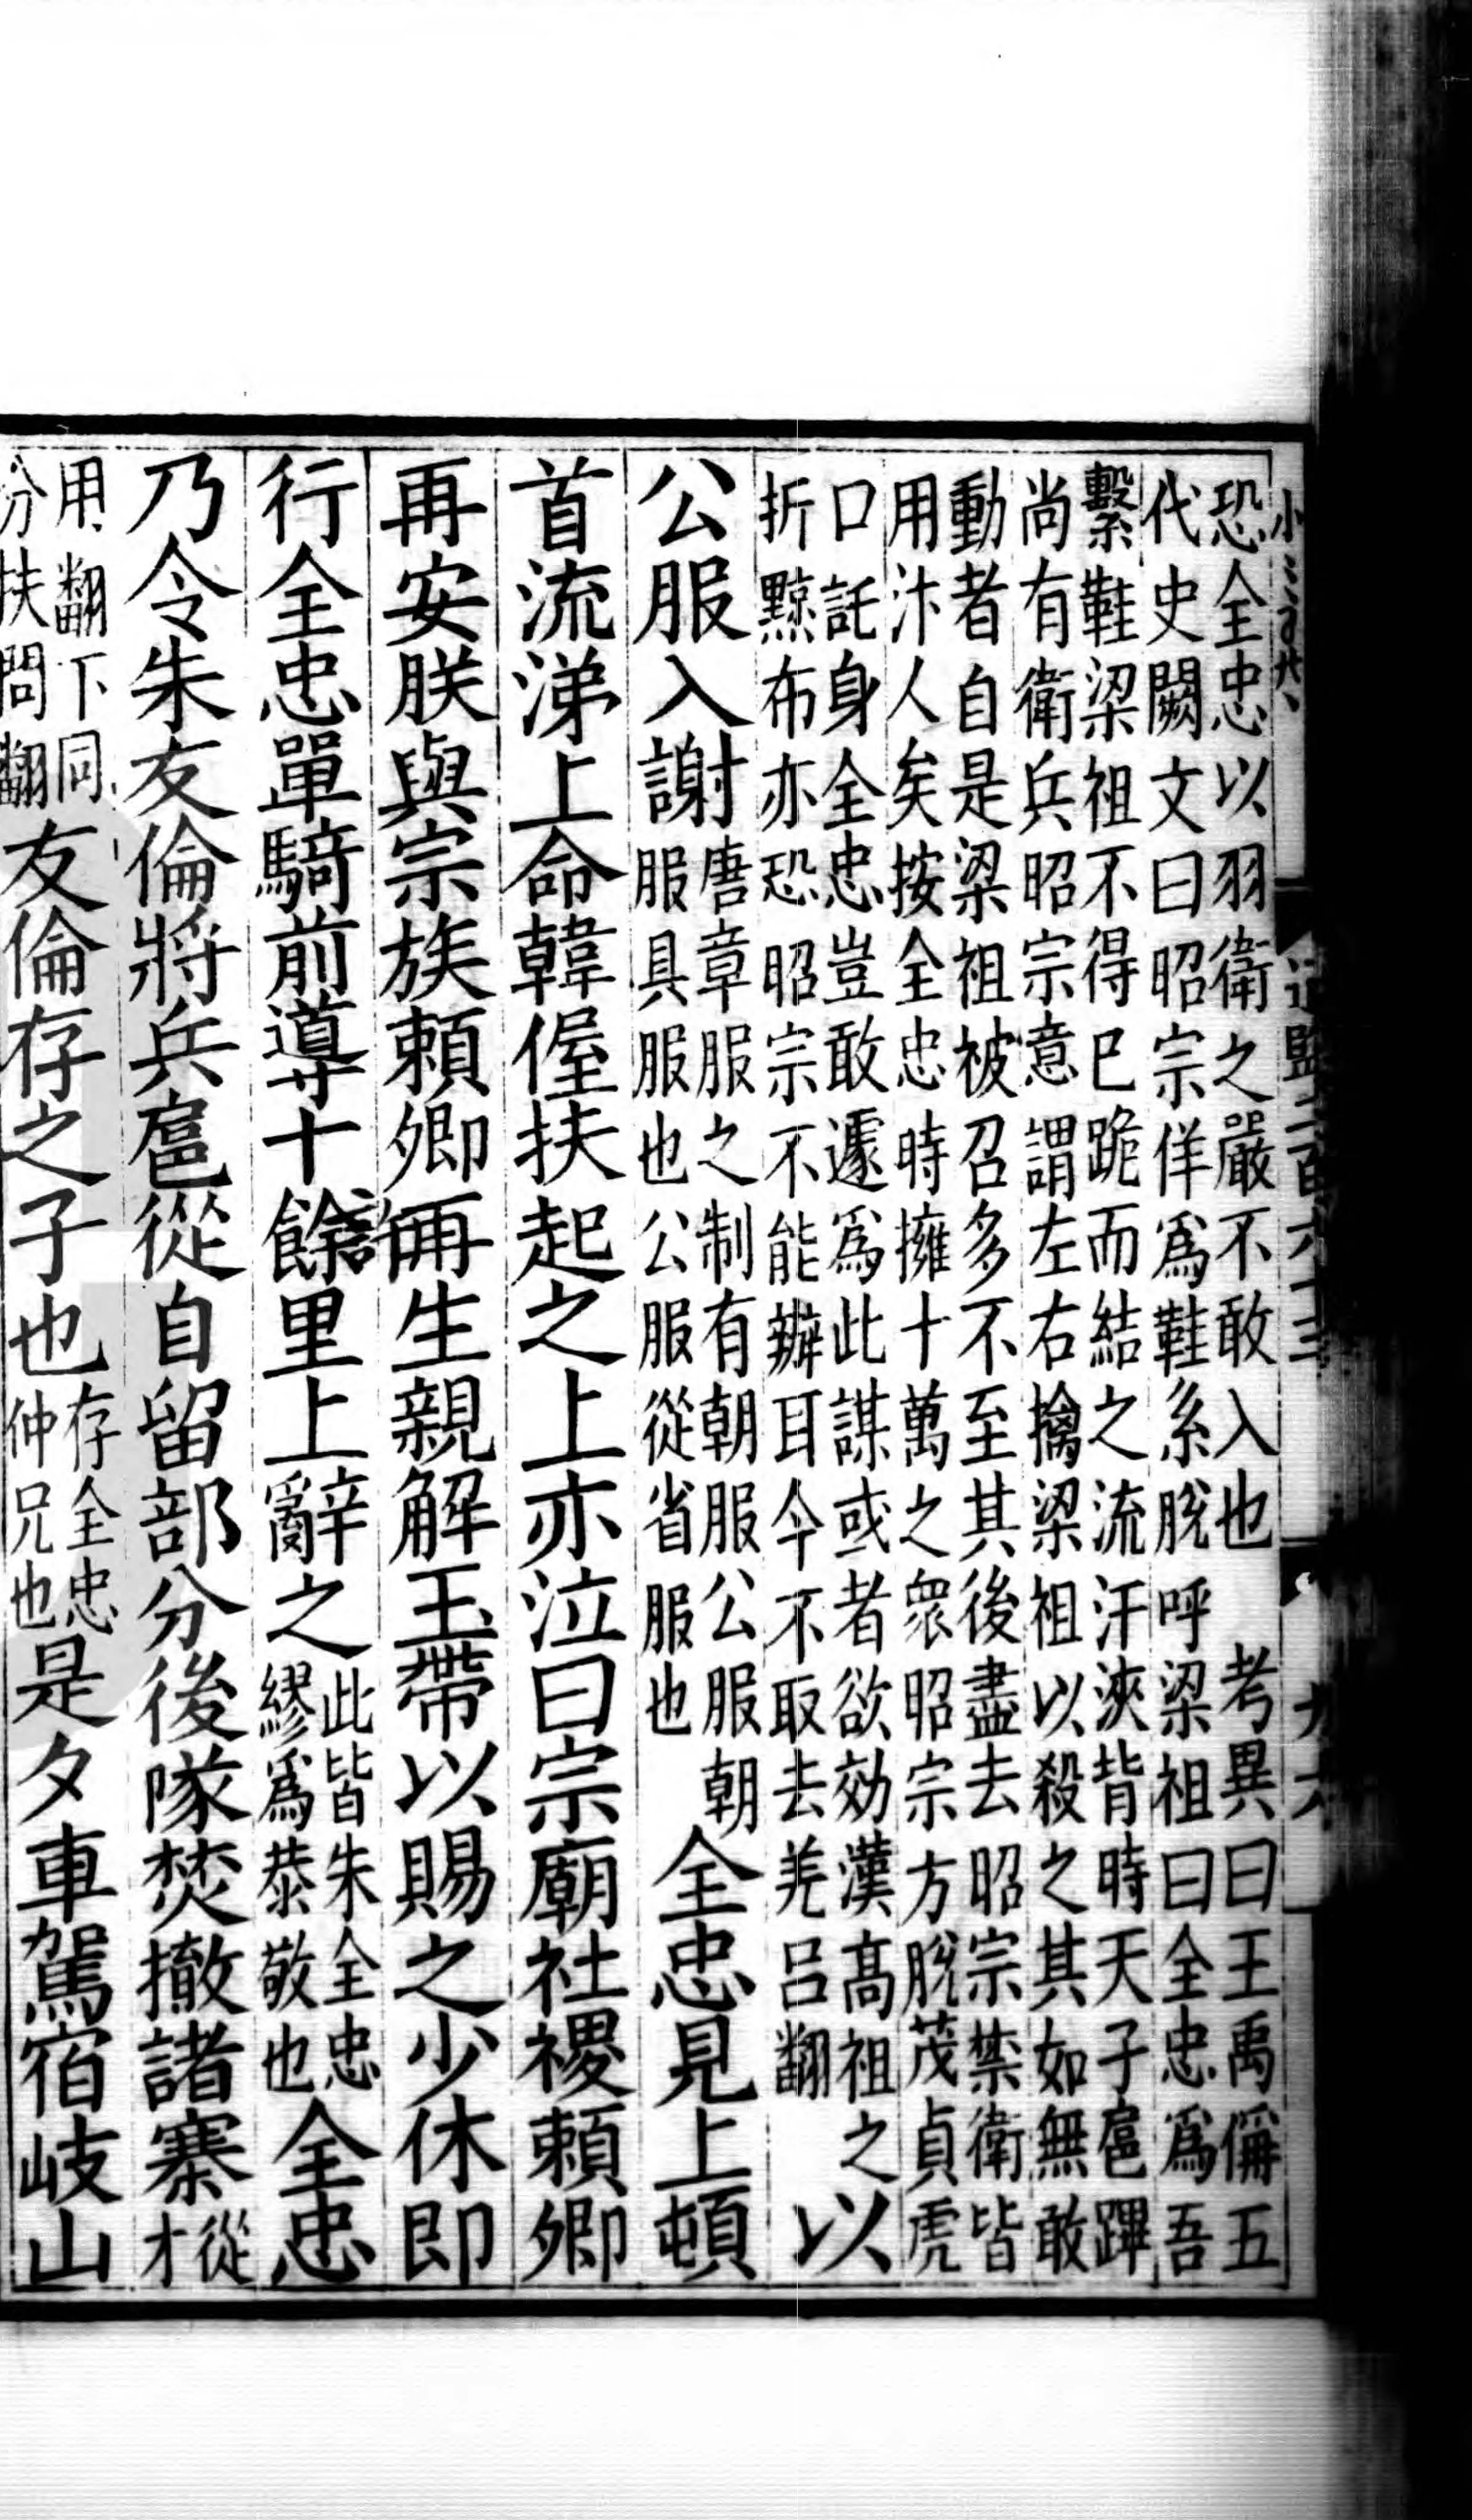 恐全忠以羽衛之嚴不敢入也 考異曰王禹偁五
代史闕文曰昭宗佯爲鞋系脫呼梁祖曰全忠爲吾
繫鞋梁祖不得已跪而結之流汗浹背時天子扈蹕
尚有衛兵昭宗意謂左右擒梁祖以殺之其如無敢
動者自是梁祖被召多不至其後盡去昭宗禁衛皆
用汴人矣按全忠時擁十萬之衆昭宗方脫茂貞虎
口託身全忠豈敢遽爲此謀或者欲効漢高祖之
折黥布亦恐昭宗不能辦耳今不取去羌呂翻
以
公服入謝
唐章服之制有朝服公服朝
服具服也公服從省服也
全忠見上頓
首流涕上命韓偓扶起之上亦泣曰宗廟社稷賴卿
再安朕與宗族賴卿再生親解玉帶以賜之少休即
行全忠單騎前導十餘里上辭之
此皆朱全忠
繆爲恭敬也
全忠
乃令朱友倫將兵扈從自留部分後隊焚撤諸寨
從
才
用翻下同
分扶問翻
友倫存之子也
存全忠
仲兄也
是夕車駕宿岐山